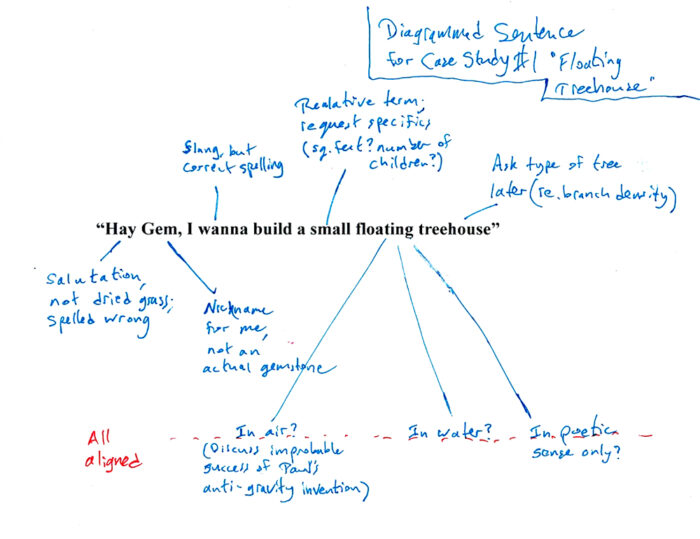 Diagrammed Sentence
for Case Study #1 "Floating
Treehouse"
Realative term;
request specifics
(sq. feet? number of
children?)
Slang, but
correct spelling
Ask type of tree
later (re. branch density)
“Hay Gem, I wanna build a small floating treehouse”
Salutation,
not dried grass;
spelled wrong
Nickname
for me,
not an
actual gemstone
All
aligned
In air?
(Discuss improbable
success of Paul's
anti-gravity invention)
In water?
In poetic
sense only?